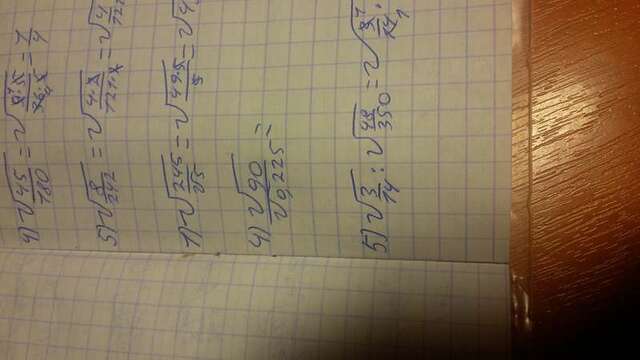 4) √45/180 = √9·5/36·5 = 1/4
5) √8/242 = √4·2/121·2 = √4/121
1) √245/√5 = √49·5/5 = √4
4) √90/√0,225 =
5) √3/14 : √48/350 = √3/14 ·